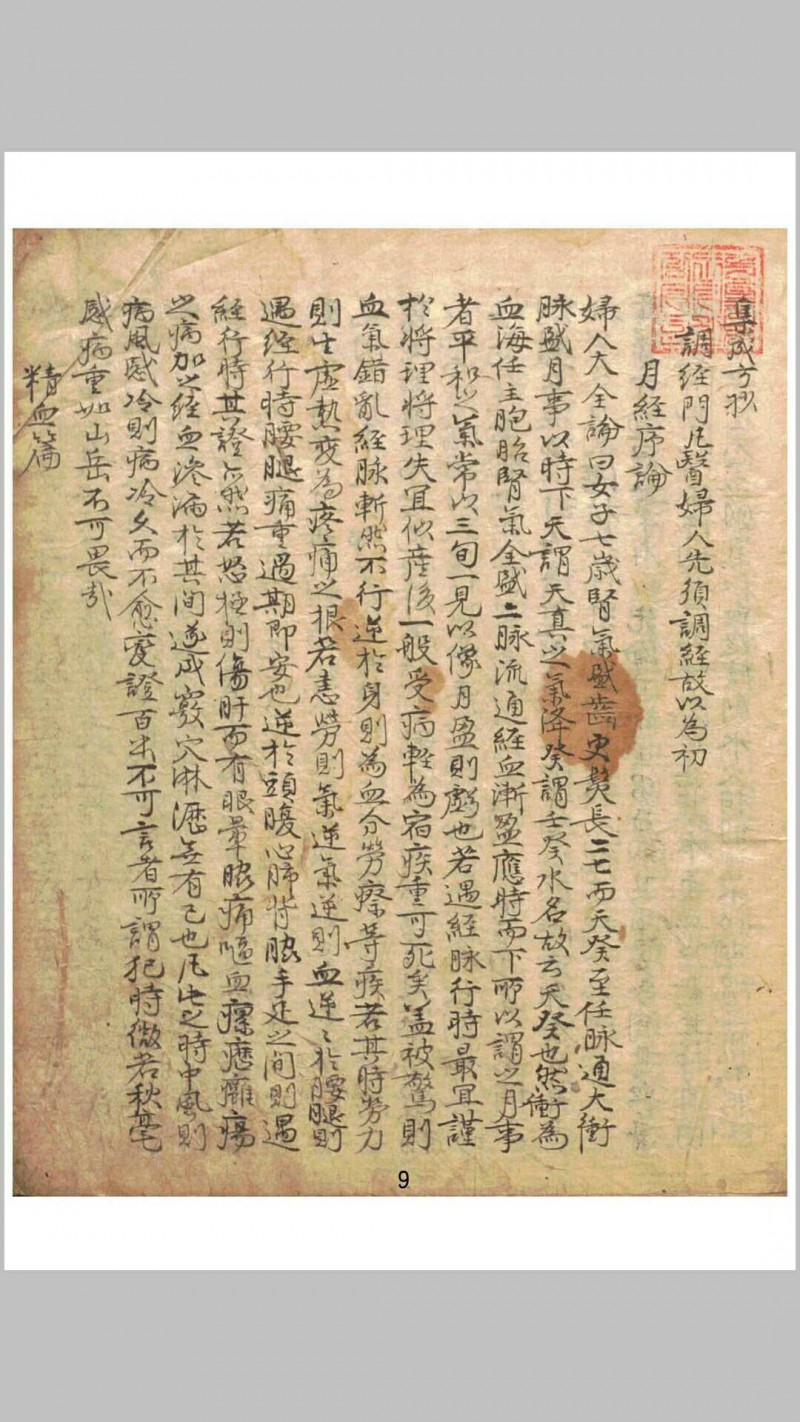 集成方抄
調經門凡醫婦人先須調經故以為初
月經序論
婦人大全論曰女子七歲腎氣盛齒更髮長二七而天癸至任脉通大衝
脉盛月事以時下天謂天真之氣降癸謂壬癸水名故云天癸也然衝為
血海任主胞胎腎氣全盛二脉流通經血漸盈應時而下所以謂之月事
者平和之氣常以三旬一見以像月盈則虧也若遇經脉行時最宜謹
於將理將理失宜似產後一般受病輕為宿疾重可死矣盖被驚則
血氣錯亂經脉斬然不行逆於身則為血分勞瘵等疾若其時勞力
則生虛熱変為疼痛之根若恚勞則氣逆氣逆則血逆〻於腰腿則
遇經行時腰腿痛重過期即安也逆於頭腹心肺背脇手足之間則遇
經行時其證亦然若怒極則傷肝而有眼暈脇痛嘔血瘰癧癰瘍
之病加之經血滲漏於其間遂成竅穴淋瀝無有已也凡此之時中風則
病風感冷則病冷久而不愈變證百出不可言者所謂犯時微若秋毫
感病重如山岳不可畏哉
精血篇
9